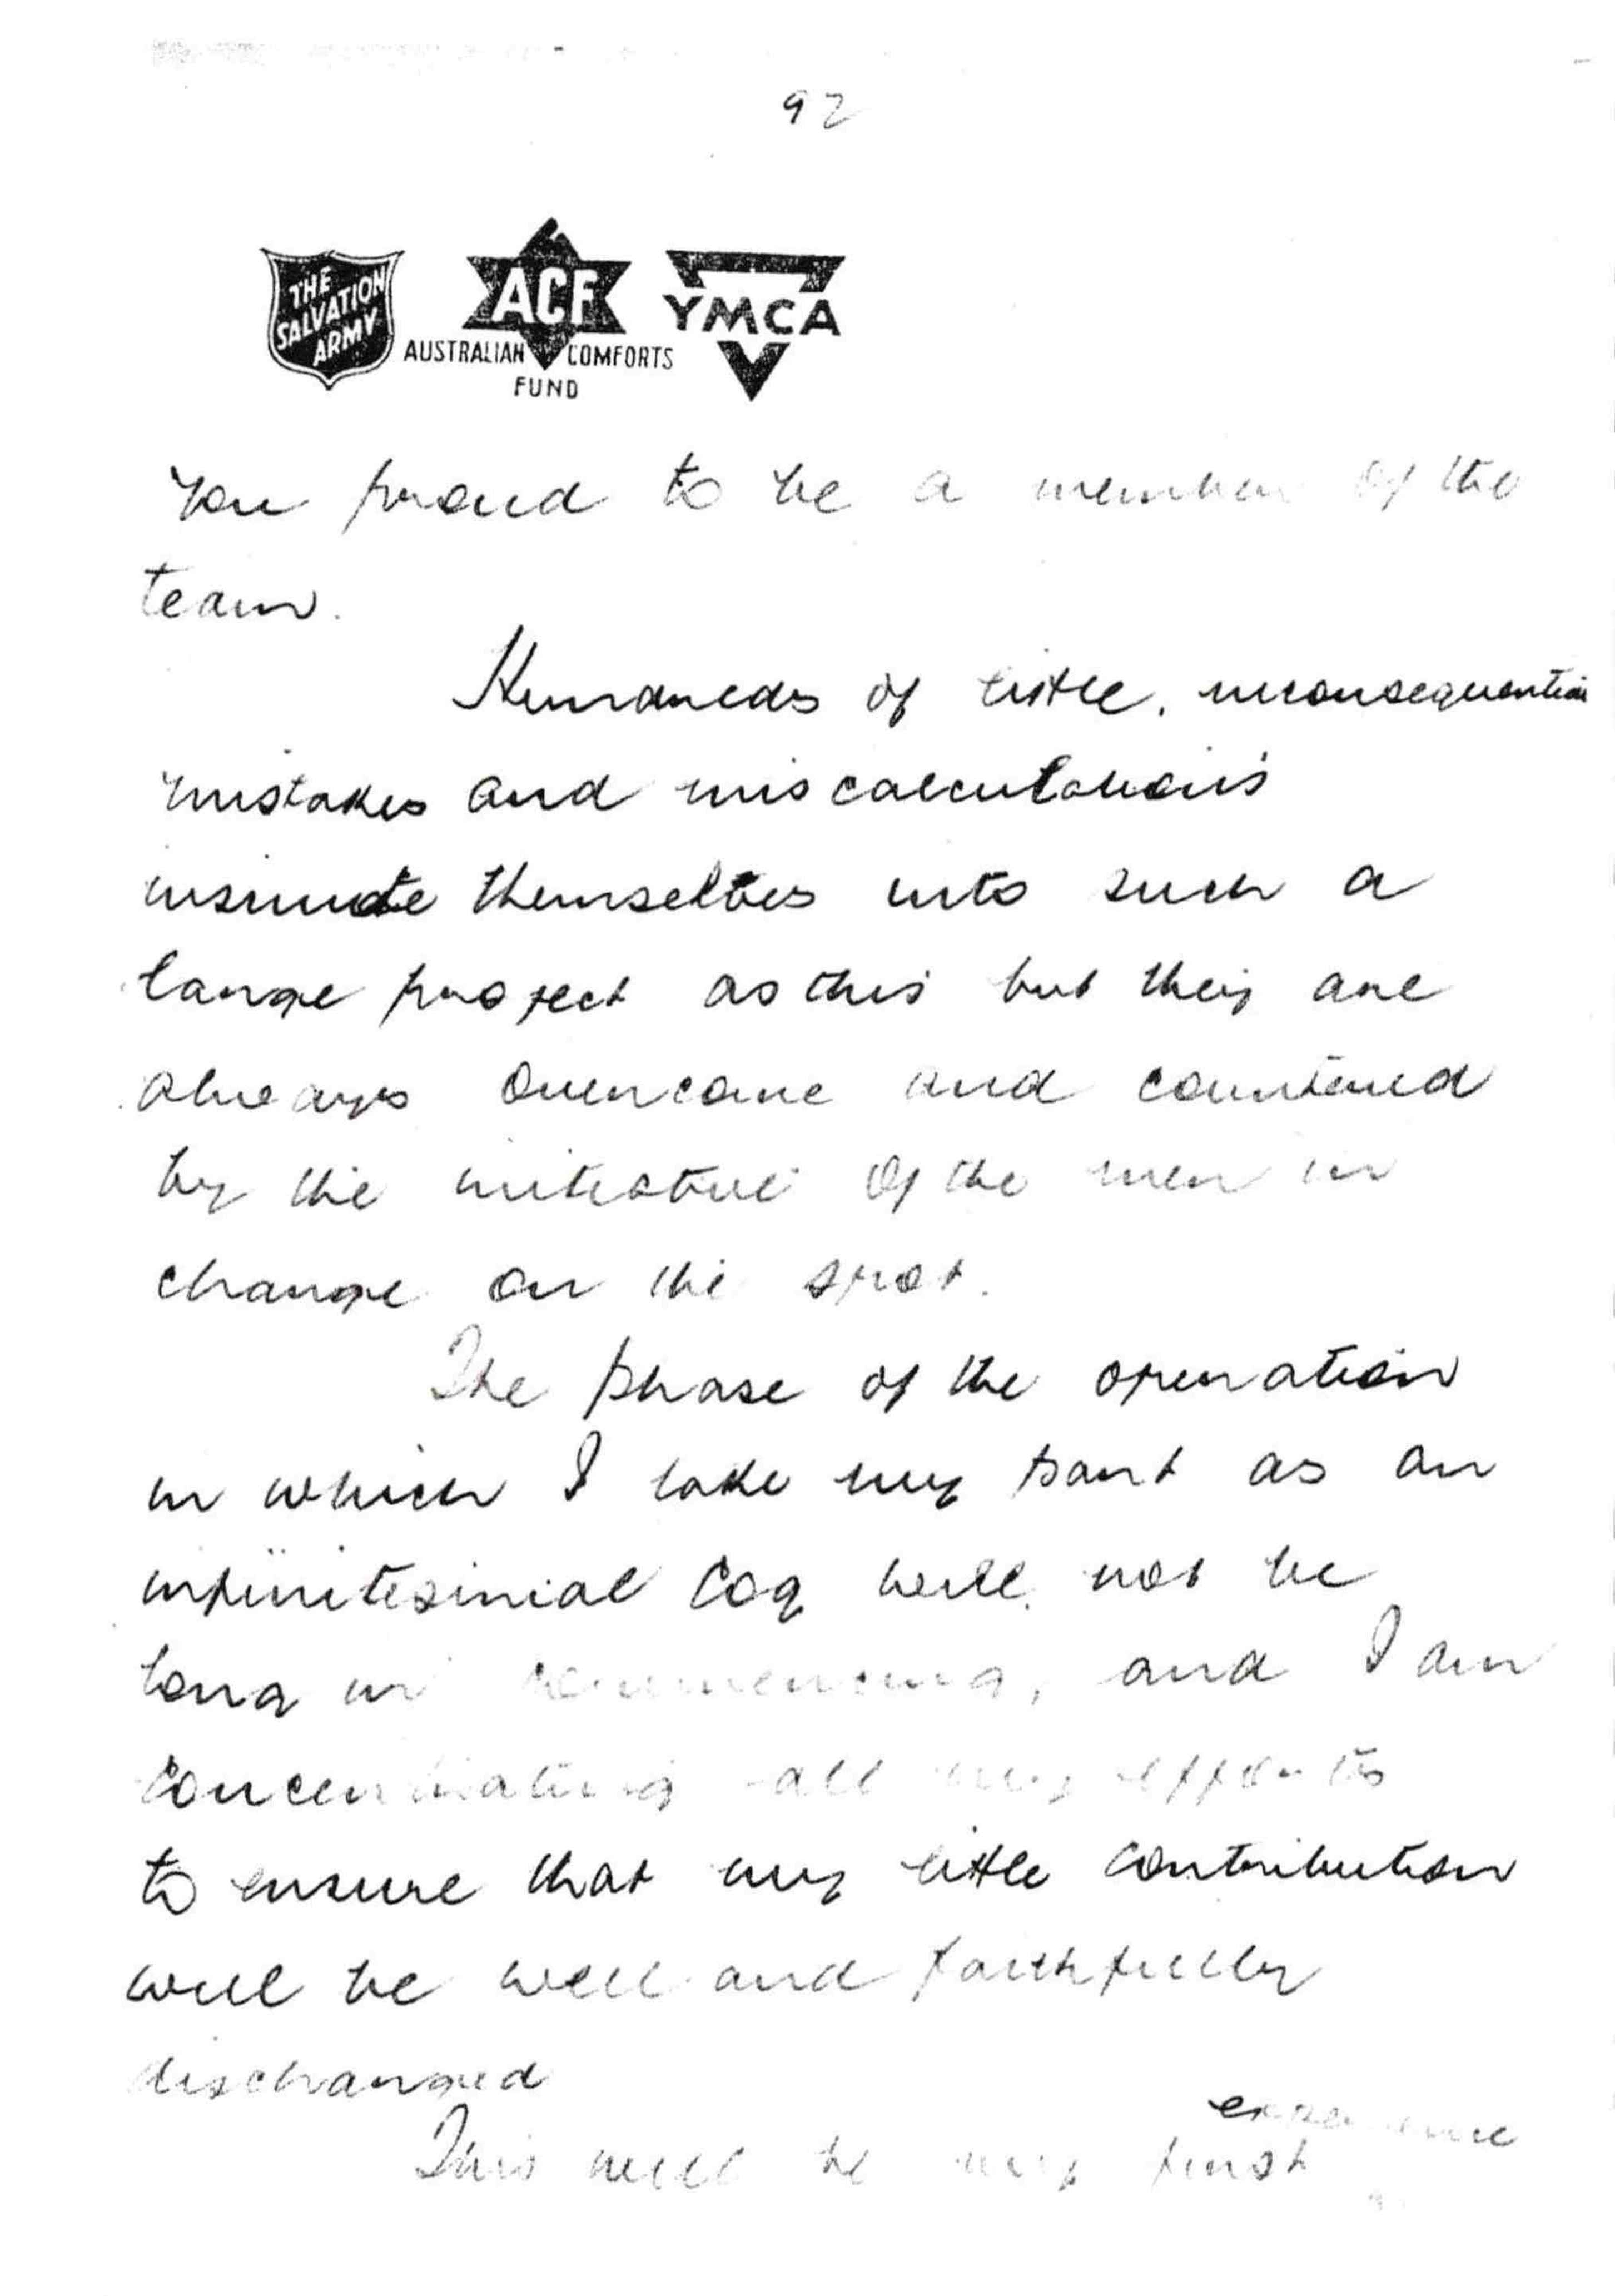 92
THE
SALVATION
ARMY
ACF
AUSTRALIAN COMFORTS
FUND
YMCA
you proud to be a member of the
team.
Hundreds of little, inconsequential
mistakes and miscalculations
insinuate themselves into such a
large project as this but they are
always overcome and countered
by the initiative of the men in
charge on the spot.
The phase of the operation
in which I take my part as an
infinitesimal cog will not be
long in commencing, and I am
concentrating all my efforts
to ensure that my little contribution
will be well and faithfully
discharged
experience
This will be my first